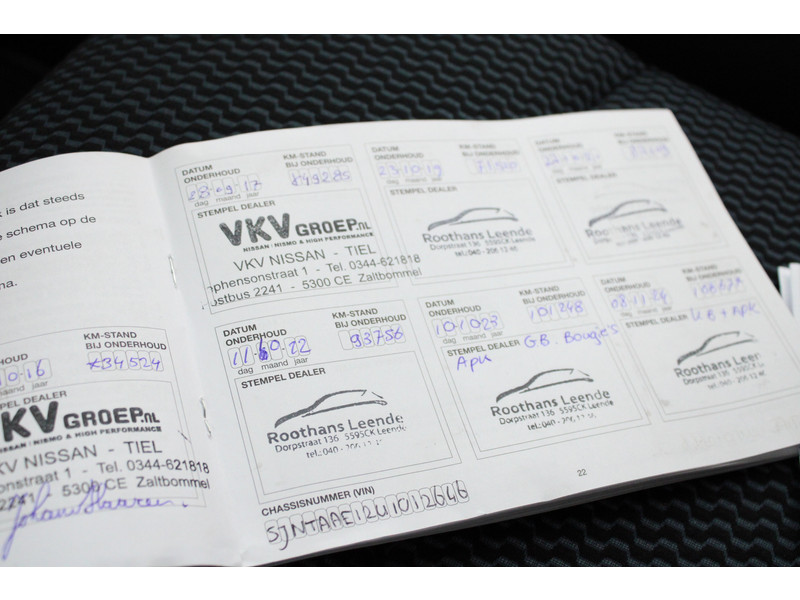 k is dat steeds
e schema op de
en eventuele
na.
HOUD
KM-STAND
BIJ ONDERHOUD
0-16
34524
maand jaar
PEL DEALER
KV GROEP.NL
NISSAN | NISMO & HIGH PERFORMANCE
KV NISSAN - TIEL
straat 1 - Tel. 0344-621818
2241 - 5300 CE Zaltbommel
DATUM
ONDERHOUD
KM-STAND
BIJ ONDERHOUD
28-09-17
dag maand jaar
STEMPEL DEALER
VKV GROEP.NL
NISSAN | NISMO & HIGH PERFORMANCE
VKV NISSAN - TIEL
phensonstraat 1 - Tel. 0344-621818
ostbus 2241 - 5300 CE Zaltbommel
DATUM
ONDERHOUD
KM-STAND
BIJ ONDERHOUD
dag maand jaar
STEMPEL DEALER
Roothans Leende
Dorpstraat 136 5595CK Leende
tel.: 040 - 206 12 46
DATUM
ONDERHOUD
KM-STAND
BIJ ONDERHOUD
dag maand jaar
STEMPEL DEALER
DATUM
ONDERHOUD
KM-STAND
BIJ ONDERHOUD
93756
dag maand jaar
STEMPEL DEALER
Roothans Leende
Dorpstraat 136 5595CK Leende
tel.: 040 - 206 12 46
DATUM
ONDERHOUD
KM-STAND
BIJ ONDERHOUD
10-10-23
101248
dag maand jaar
STEMPEL DEALER GB. Bougie's
Apk
Roothans Leende
Dorpstraat 136 5595CK Leende
tel.: 040 - 206 12 46
DATUM
ONDERHOUD
KM-STAND
BIJ ONDERHOUD
08-11-24
dag maand jaar
STEMPEL DEALER
Roothans Leende
Dorpstraat 136 5595CK Leende
CHASSISNUMMER (VIN)
SJNTAAE12U1012646
22